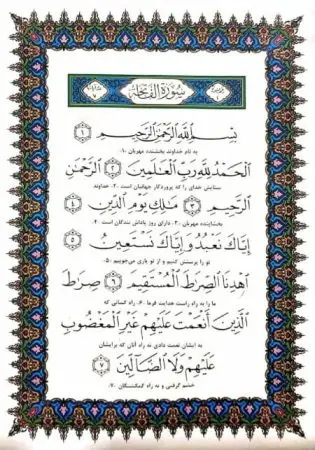 سُورَةُ الْفَاتِحَةِ
بِسْمِ اللَّهِ الرَّحْمَٰنِ الرَّحِيمِ ١
به نام خداوند بخشنده مهربان .۱
الْحَمْدُ لِلَّهِ رَبِّ الْعَالَمِينَ ٢ الرَّحْمَٰنِ
ستایش خدای را که پروردگار جهانیان است .۲ خداوند
الرَّحِيمِ ٣ مَالِكِ يَوْمِ الدِّينِ ٤
بخشاینده مهربان .۳ دارای روز پاداش بندگان است .۴
إِيَّاكَ نَعْبُدُ وَإِيَّاكَ نَسْتَعِينُ ٥
تو را پرستش کنیم و از تو یاری می‌جوییم .۵
اهْدِنَا الصِّرَاطَ الْمُسْتَقِيمَ ٦ صِرَاطَ
ما را به راه راست هدایت فرما .۶ راه کسانی که
الَّذِينَ أَنْعَمْتَ عَلَيْهِمْ غَيْرِ الْمَغْضُوبِ
به ایشان نعمت دادی نه راه آنان که برایشان
عَلَيْهِمْ وَلَا الضَّالِّينَ ٧
خشم گرفتی و نه راه گمگشتگان .۷